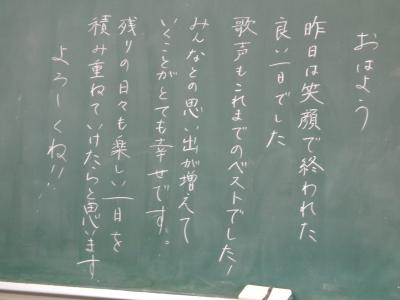 おはよう
昨日は笑顔で終われた
良い一日でした
歌声もこれまでのベストでした!
みんなとの思い出が増えて
いくことがとても幸せです。
残りの日々も楽しい一日を
積み重ねていけたらと思います
よろしくね!!